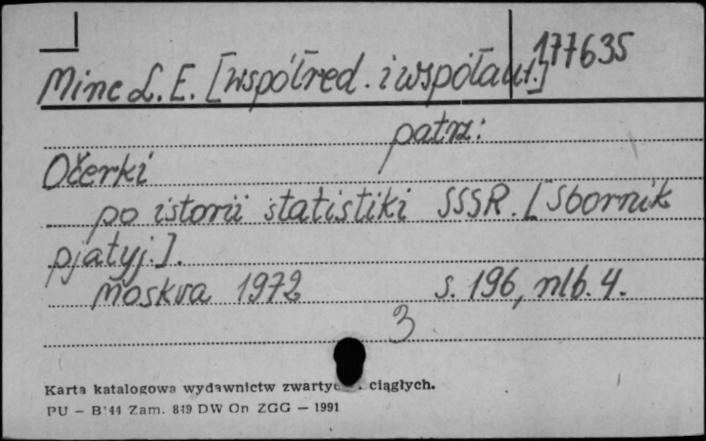 177635
Minc L. E. [współred. i współaut.]
patrz:
Očerki
po istorii statistiki SSSR. [Sbornik
pjatyj.].
Moskva 1972 s. 196, nlb. 4.
3
Karta katalogowa wydawnictw zwartych ciągłych.
PU — B'44 Zam. 849 DW On ZGG — 1991